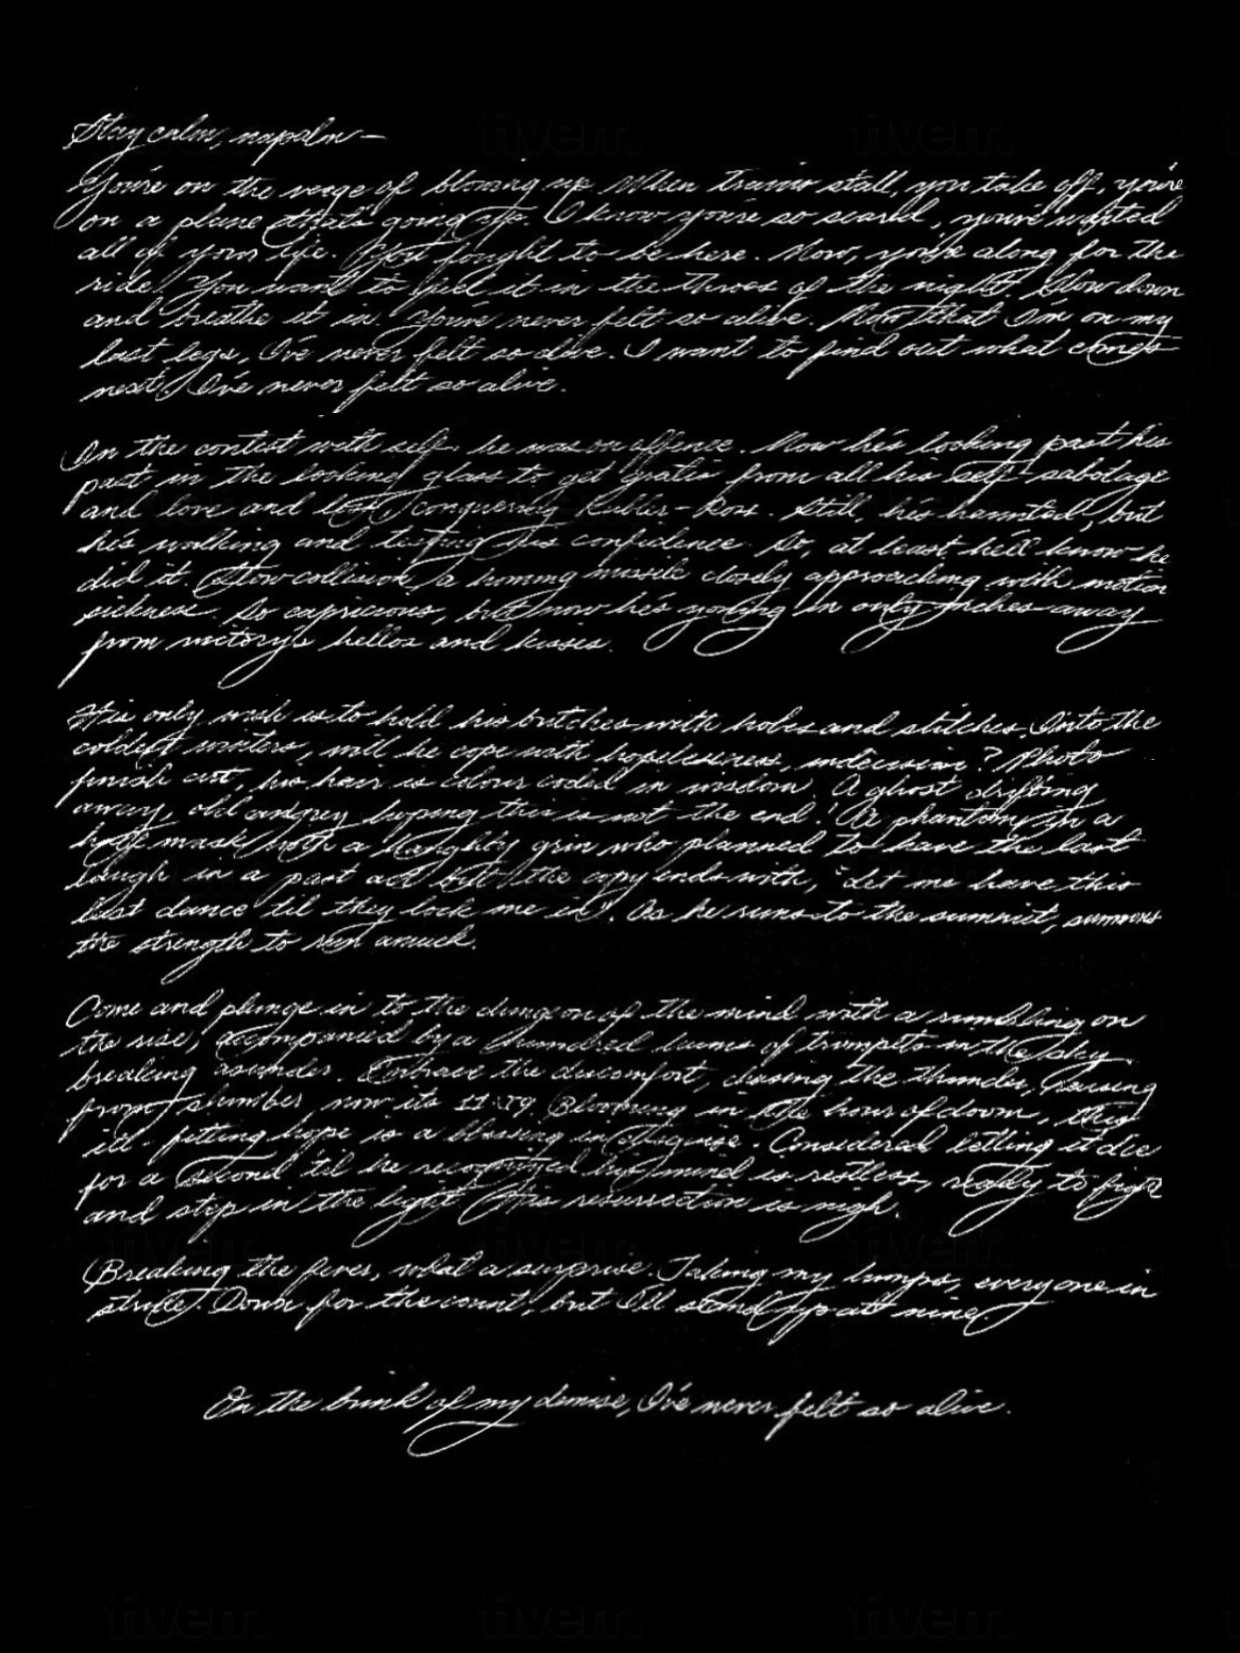 Stay calm, napalm—
You're on the verge of blowing up. When trains stall, you take off, you're
on a plane that's going up. I know you're so scared, you've wanted
all of your life. You fought to be here. Now, you're along for the
ride. You want to feel it in the throes of the night. Slow down
and breathe it in. You've never felt so alive. Now that I'm on my
last legs, I've never felt so alive. I want to find out what comes
next. I've never felt so alive.
In the contest with self, he was on offence. Now he's looking past his
past in the looking glass to get gratis from all his self-sabotage
and love and loss, conquering Kubler-Ross. Still, he's haunted, but
he's walking and testing his confidence. So, at least he'll know he
did it. Slow collision, a homing missile closely approaching with motion
sickness. So capricious, but now he's in only inches away
from victory's hellos and kisses.
His only wish is to hold his britches with hopes and stitches. Into the
coldest winters, will he cope with hopelessness, indecision? Photo
finish cut, his hair is colour coded in wisdom. A ghost drifting
away, old angry hoping this is not the end. Or phantom in a
half mask with a naughty grin who planned to have the last
laugh in a past act but the copy ends with, "Let me have this
last dance 'til they lock me in". As he runs to the summit, summons
the strength to run amuck.
Come and plunge in to the dungeon of the mind with a rumbling on
the rise, accompanied by a hundred hums of trumpets in the sky
breaking asunder. Embrace the discomfort, chasing the thunder, rousing
from slumber, now its 11:59. Blooming in the hour of doom, this
ill-fitting hope is a blessing in disguise. Considered letting it die
for a second 'til he recognized his mind is restless, ready to fight
and step in the light. His resurrection is nigh.
Breaking the fever, what a surprise. Taking my lumps, everyone in
stride. Down for the count, but I'll stand up at nine.
On the brink of my demise, I've never felt so alive.
fiverr.
fiverr.
fiverr.
fiverr.
fiverr.
fiverr.
fiverr.